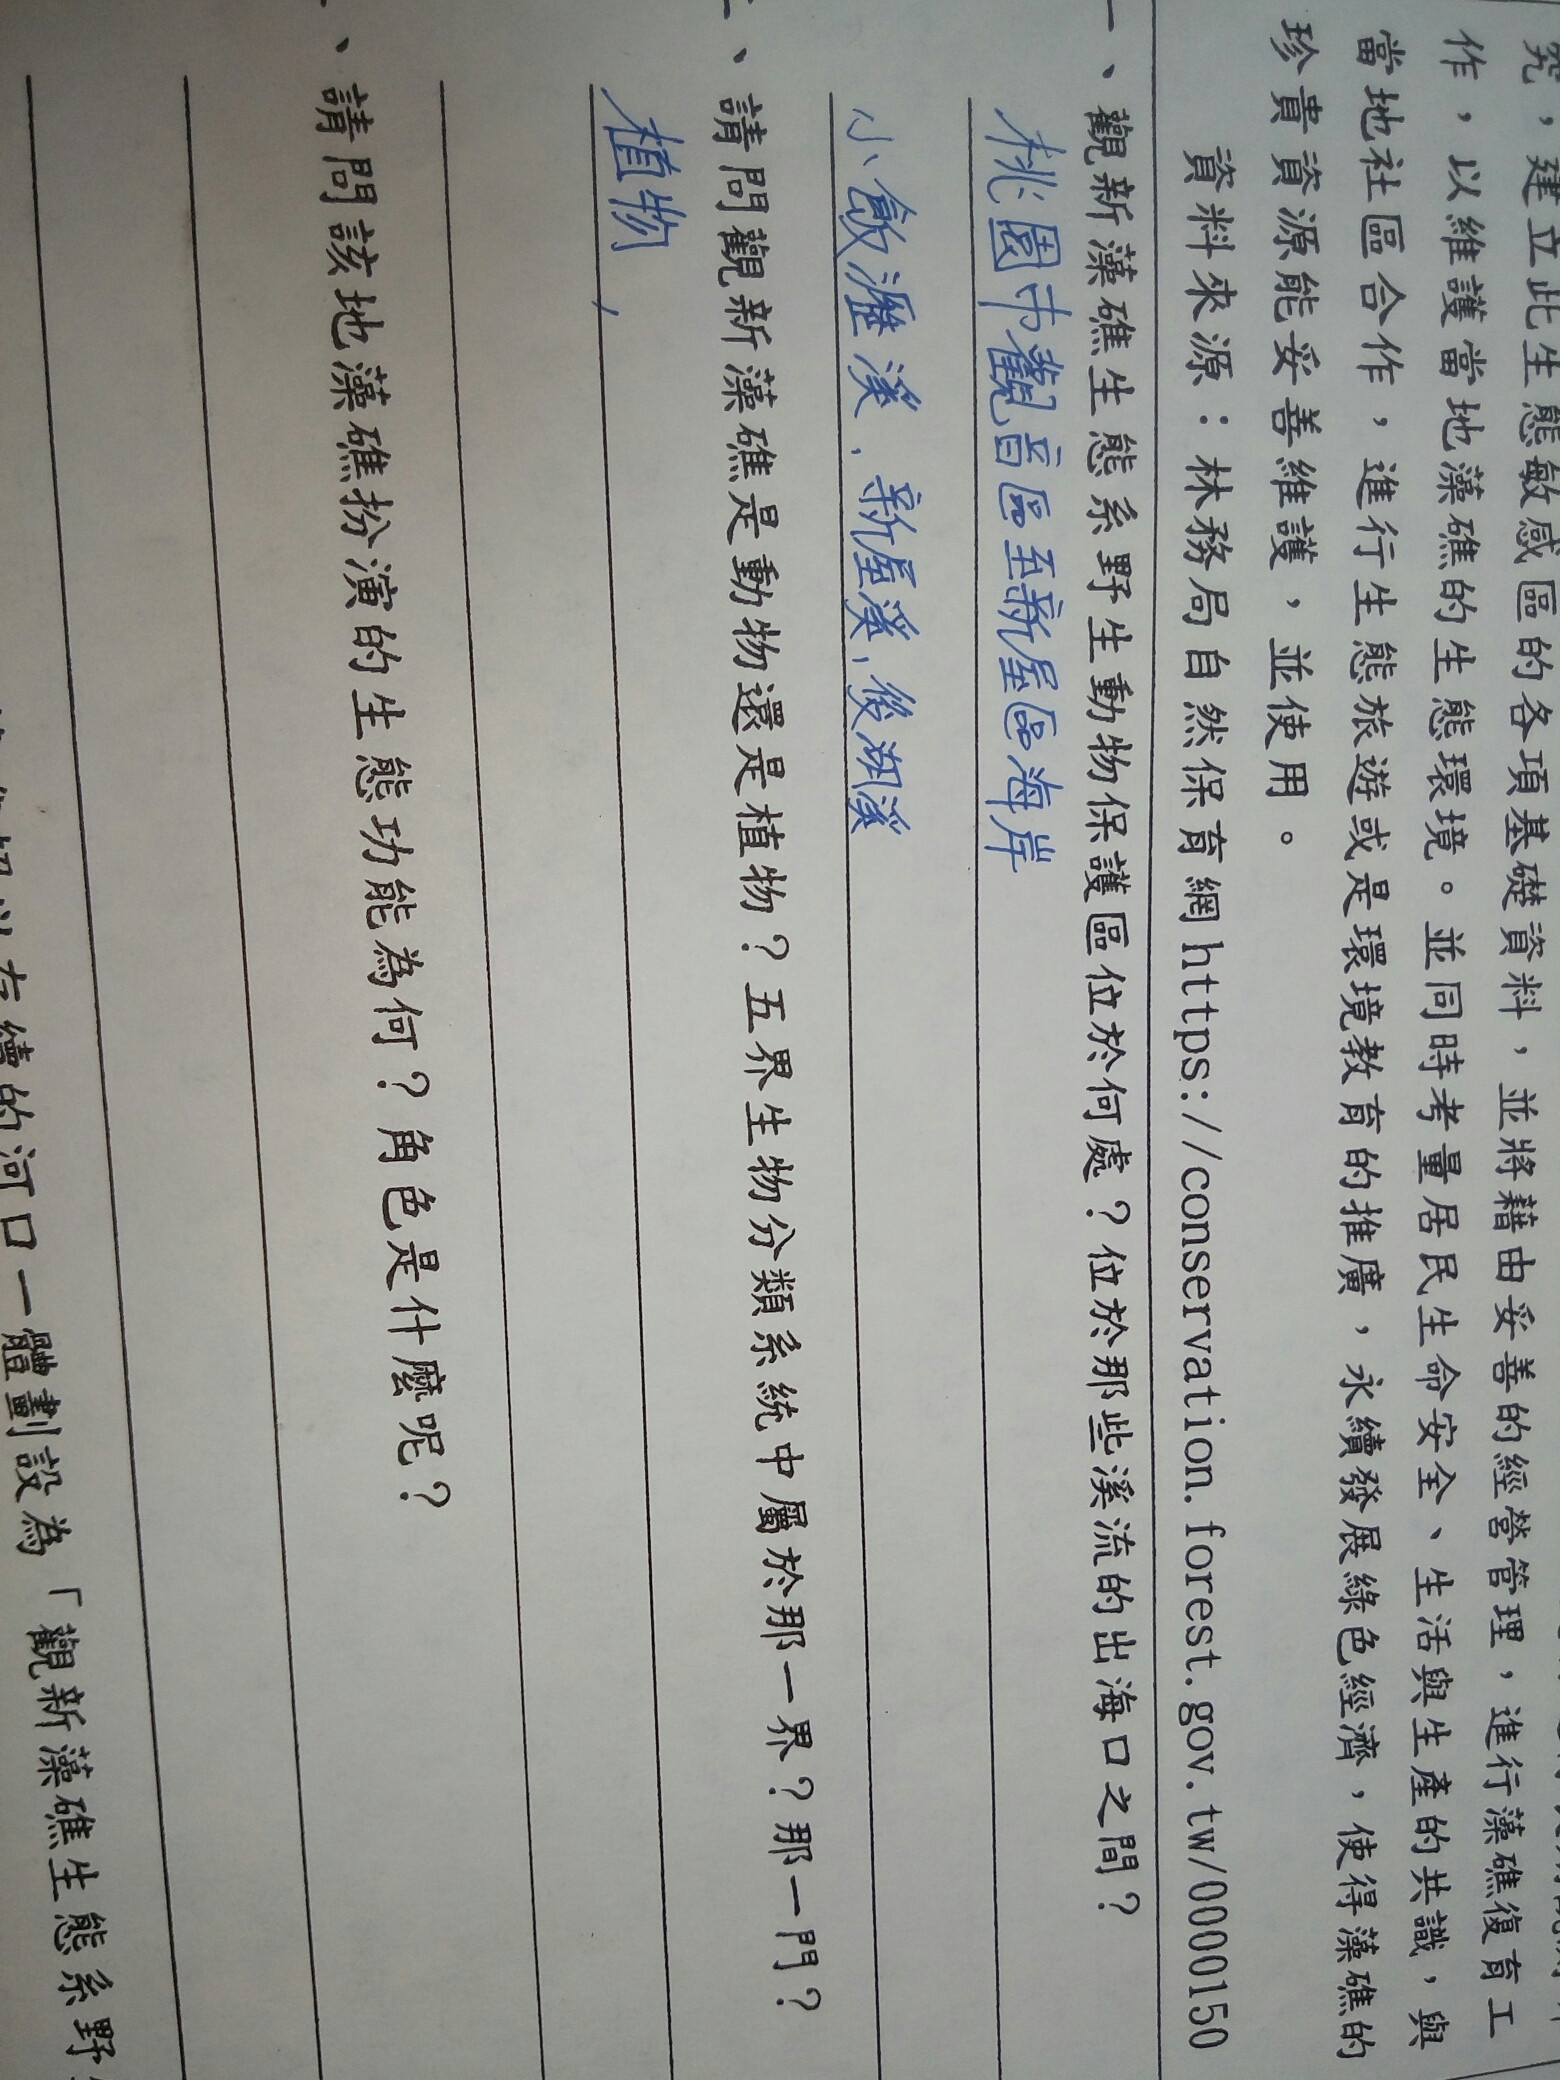 究，建立此生態敏感區的各項基礎資料，並將藉由妥善的經營管理，進行藻礁復育工
作，以維護當地藻礁的生態環境。並同時考量居民生命安全、生活與生產的共識，與
當地社區合作，進行生態旅遊或是環境教育的推廣，永續發展綠色經濟，使得藻礁的
珍貴資源能妥善維護，並使用。
資料來源：林務局自然保育網https://conservation.forest.gov.tw/0000150
一、觀新藻礁生態系野生動物保護區位於何處？位於那些溪流的出海口之間？
桃園市觀音區至新屋區海岸
小飲瀝溪、新屋溪,後湖溪
、請問觀新藻礁是動物還是植物？五界生物分類系統中屬於那一界？那一門？
植物,
、請問該地藻礁扮演的生態功能為何？角色是什麼呢？
以左續的河口一體劃設為「觀新藻礁生態系野